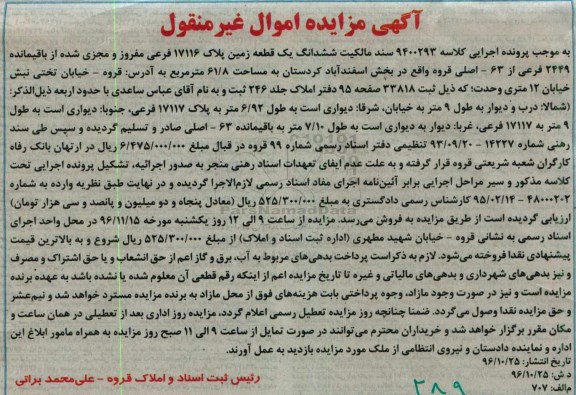 آگهی مزایده اموال غیرمنقول
به موجب پرونده اجرایی کلاسه ۹۴۰۰۲۹۳ سند مالکیت ششدانگ یک قطعه زمین پلاک ۱۷۱۱۶ فرعی مفروز و مجزی شده از باقیمانده
۲۴۴۹ فرعی از ۶۳ - اصلی قروه واقع در بخش اسفندآباد کردستان به مساحت ۶۱/۸ مترمربع به آدرس: قروه - خیابان تختی نبش
خیابان ۱۲ متری وحدت؛ که ذیل ثبت ۳۳۸۱۸ صفحه ۹۵ دفتر املاک جلد ۲۴۶ ثبت و به نام آقای عباس ساعدی با حدود اربعه ذیل‌الذکر:
(شمالا: درب و دیوار به طول ۹ متر به خیابان، شرقا: دیواری است به طول ۶/۹۲ متر به پلاک ۱۷۱۱۷ فرعی، جنوبا: دیواری است به طول
۹ متر به ۱۷۱۱۷ فرعی، غربا: دیوار به دیواری است به طول ۷/۱۰ متر به باقیمانده ۶۳ - اصلی صادر و تسلیم گردیده و سپس طی سند
رهنی شماره ۱۴۲۳۷ - ۹۳/۰۹/۲۰ تنظیمی دفتر اسناد رسمی شماره ۹۹ قروه در قبال مبلغ ۶/۴۷۵/۰۰۰/۰۰۰ ریال در ارتهان بانک رفاه
کارگران شعبه شریعتی قروه قرار گرفته و به علت عدم ایفای تعهدات اسناد رهنی منجر به صدور اجرائیه، تشکیل پرونده اجرایی تحت
کلاسه مذکور و سیر مراحل اجرایی برابر آئین‌نامه اجرای مفاد اسناد رسمی لازم‌الاجرا گردیده و در نهایت طبق نظریه وارده به شماره
۴۸۰۰۰۲۰۲ - ۹۵/۰۲/۱۴ کارشناس رسمی دادگستری به مبلغ ۵۲۵/۳۰۰/۰۰۰ ریال (معادل پنجاه و دو میلیون و پانصد و سی هزار تومان)
ارزیابی گردیده است از طریق مزایده به فروش می‌رسد. مزایده از ساعت ۹ الی ۱۲ روز یکشنبه مورخه ۹۶/۱۱/۱۵ در محل واحد اجرای
اسناد رسمی به نشانی قروه - خیابان شهید مطهری (اداره ثبت اسناد و املاک) از مبلغ ۵۲۵/۳۰۰/۰۰۰ ریال شروع و به بالاترین قیمت
پیشنهادی نقدا فروخته می‌شود. لازم به ذکر است پرداخت بدهی‌های مربوط به آب، برق و گاز اعم از حق انشعاب و یا حق اشتراک و مصرف
و نیز بدهی‌های شهرداری و بدهی‌های مالیاتی و غیره تا تاریخ مزایده اعم از اینکه رقم قطعی آن معلوم شده یا نشده باشد به عهده برنده
مزایده است و نیز در صورت وجود مازاد، وجوه پرداختی بابت هزینه‌های فوق از محل مازاد به برنده مزایده مسترد خواهد شد و نیم‌عشر
و حق مزایده نقدا وصول می‌گردد. ضمنا چنانچه روز مزایده تعطیل رسمی اعلام گردد، مزایده روز اداری بعد از تعطیلی در همان ساعت و
مکان مقرر برگزار خواهد شد و خریداران محترم می‌توانند در صورت تمایل از ساعت ۹ الی ۱۱ صبح روز مزایده به همراه مامور ابلاغ این
اداره و نماینده دادستان و نیروی انتظامی از ملک مورد مزایده بازدید به عمل آورند.
تاریخ انتشار: ۹۶/۱۰/۲۵
د ش: ۹۶/۱۰/۲۵
م‌الف: ۷۰۷
رئیس ثبت اسناد و املاک قروه - علی‌محمد براتی
۲۸۹